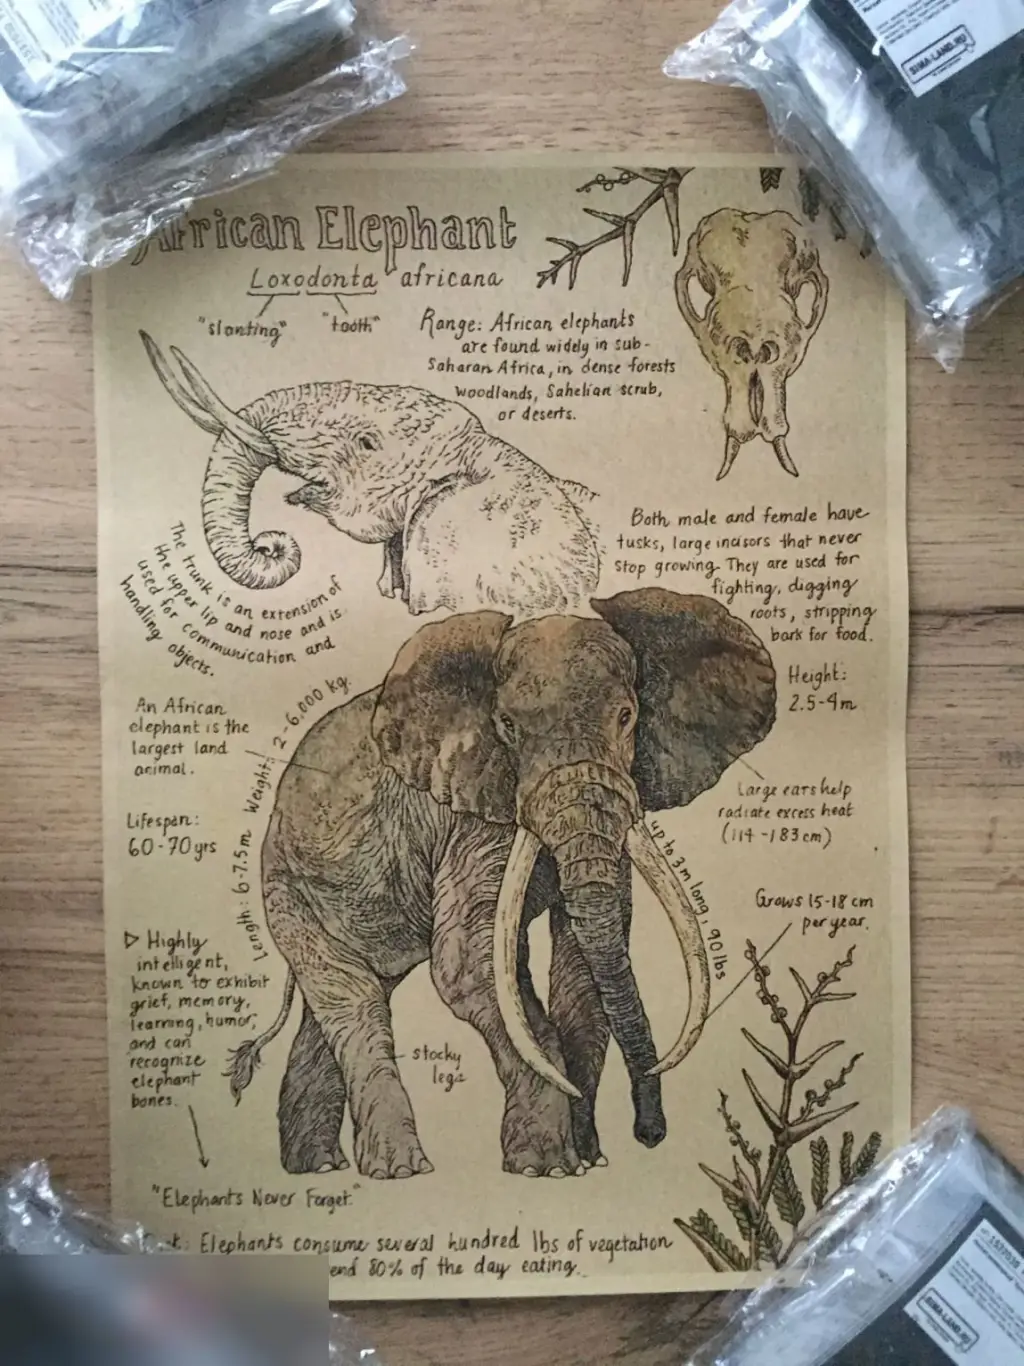 African Elephant
Loxodonta africana
"slanting" "tooth"
Range: African elephants
are found widely in sub-
Saharan Africa, in dense forests
woodlands, Sahelian scrub,
or deserts.
Both male and female have
tusks, large incisors that never
stop growing. They are used for
fighting, digging
roots, stripping
bark for food.
The trunk is an extension of
the upper lip and nose and is
used for communication and
handling objects.
An African
elephant is the
largest land
animal.
Weight: 2-6,000 kg.
Height:
2.5-4m
Large ears help
radiate excess heat
(114-183cm)
Lifespan:
60-70yrs
Length: 6-7.5m
up to 3m long, 90lbs
Grows 15-18 cm
per year.
Highly
intelligent,
known to exhibit
grief, memory,
learning, humor,
and can
recognize
elephant
bones.
stocky
legs
"Elephants Never Forget."
Elephants consume several hundred lbs of vegetation
80% of the day eating.
SIMA-LAND.RU
SIMA-LAND.RU